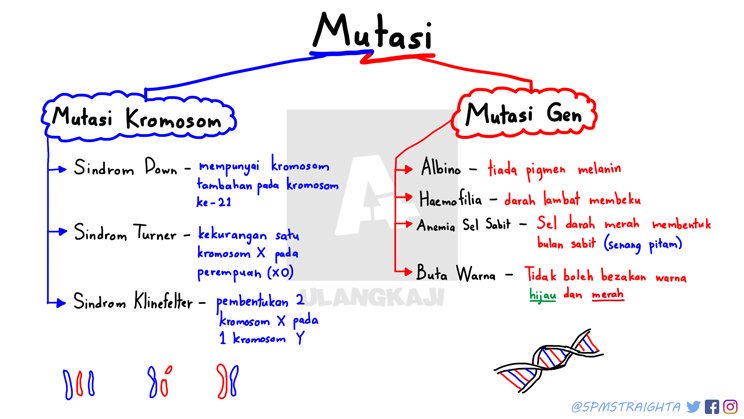 Mutasi
Mutasi Kromosom
Sindrom Down - mempunyai kromosom
tambahan pada kromosom
ke-21
Sindrom Turner - kekurangan satu
kromosom X pada
perempuan (XO)
Sindrom Klinefelter - pembentukan 2
kromosom X pada
1 kromosom Y
Mutasi Gen
Albino - tiada pigmen melanin
Haemofilia - darah lambat membeku
Anemia Sel Sabit - Sel darah merah membentuk
bulan sabit (senang pitam)
Buta Warna - Tidak boleh bezakan warna
hijau dan merah
ULANGKAJI
@SPMSTRAIGHTA